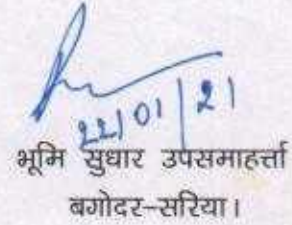 22/01/21
भूमि सुधार उपसमाहर्त्ता
बगोदर-सरिया।